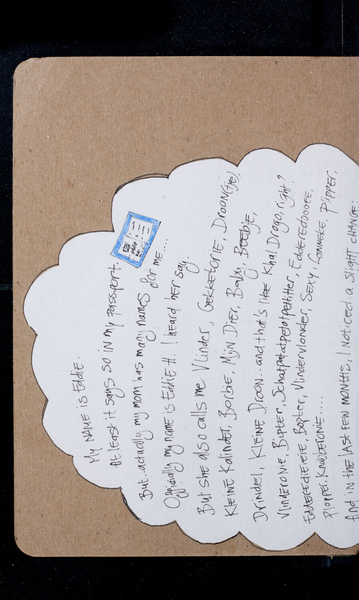 My NAME is Eddie.
At least it says so in my passport.
But..actually my mom has many names for me....
Officially my name is Eddie H. I heard her say.
But she also calls me Vlinder, Gekketonie, Droon(tje),
Kleine Kalinder, Borsne, Mijn Dier, Baby, Beebje,
Drindel, Kleine Droon...and that's like Khal Drogo, right?
Vlinderonie, Bipter, Schatpetatpetotpetitter, Eddereedooee,
Eddereederetie, Bopter, Vlindervlonder, Sexy, Gonneke, Plipper,
Plopper, Knabbeltonie.....
And in the last few months, I noticed a slight change: